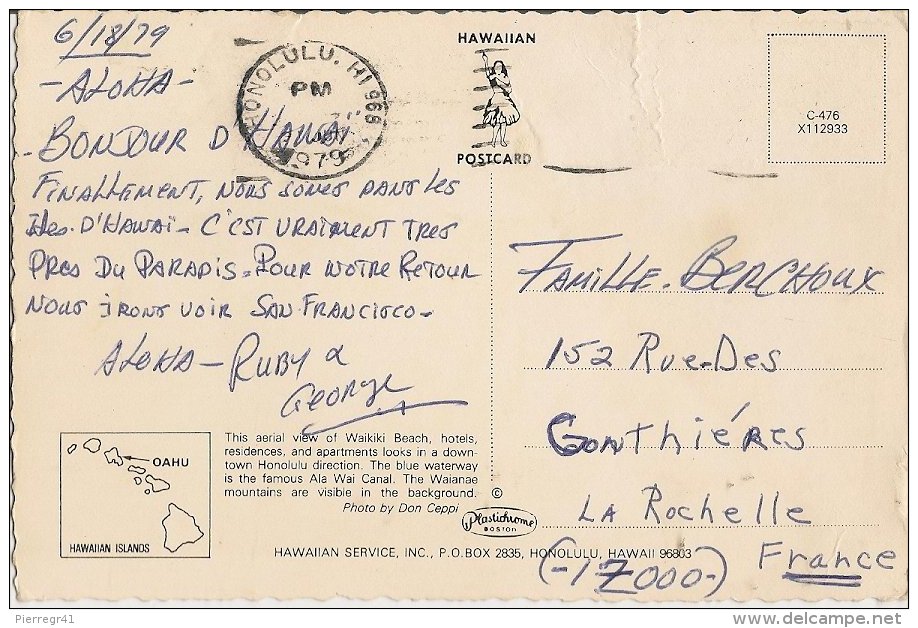 6/18/79
-ALOHA-
-BONJOUR D'HAWAÏ
FINALLEMENT, NOUS SOMES DANS LES
ILes. D'HAWAÏ - C'EST VRAIMENT TRES
PRES DU PARADIS - POUR NOTRE RETOUR
NOUS IRONS VOIR SAN FRANCISCO -
ALOHA - RUBY &
GEORGE
HONOLULU. HI 968
PM
1979
HAWAIIAN
POSTCARD
C-476
X112933
FAMILLE. BERCHOUX
152 Rue-Des
Gonthiéres
LA Rochelle
(-17000-) France
OAHU
HAWAIIAN ISLANDS
This aerial view of Waikiki Beach, hotels,
residences, and apartments looks in a down-
town Honolulu direction. The blue waterway
is the famous Ala Wai Canal. The Waianae
mountains are visible in the background.
Photo by Don Ceppi
©
Plastichrome
BOSTON
HAWAIIAN SERVICE, INC., P.O. BOX 2835, HONOLULU, HAWAII 96803
Pierregr41
delcampe.net